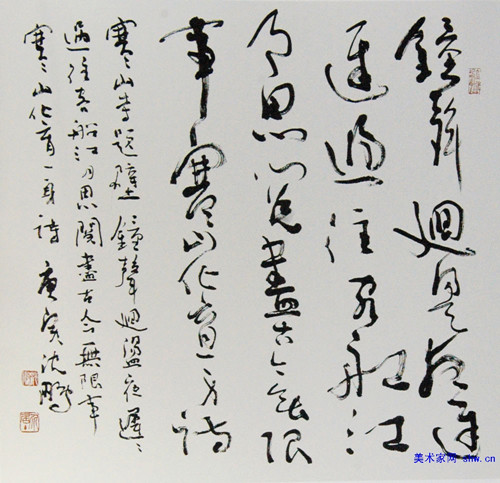 鐘聲迴盪夜遲
遲過往客船江
月思閱盡古今無限
事寒山化育一身詩
寒山寺題壁 鐘聲迴盪夜遲〻
過往客船江月思閱盡古今無限事
寒山化育一身詩 庚寅沈鵬
美术家网